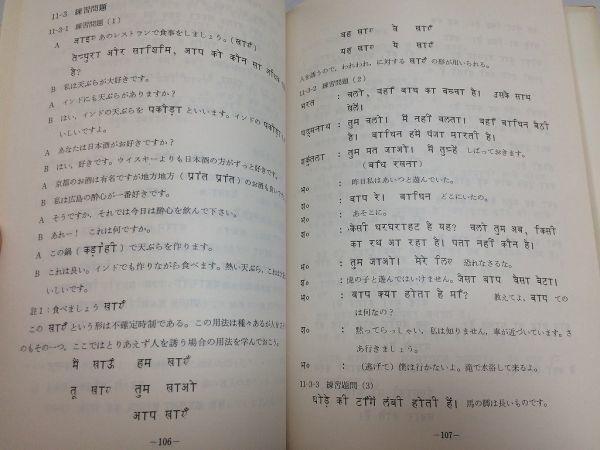 11-3 練習問題
11-3-1 練習問題(1)
A आइए あのレストランで食事をしましょう。(खाएँ)
तेम्पुरा और साशिमि, आप को कौन सा अधिक
है?
B 私は天ぷらが大好きです。
A インドにも天ぷらがありますか?
B はい、インドの天ぷらを पकौड़ा といいます。インドの पकौड़ा
いしいですよ。
A あなたは日本酒がお好きですか?
B はい、好きです。ウイスキーよりも日本酒の方がずっと好きです。
A 京都のお酒は有名ですが地方地方(प्रांत प्रांत)のお酒も良い
B 私は広島の酔心が一番好きです。
A そうですか。それでは今日は酔心を飲んで下さい。
B あれー! これは何ですか。
A この鍋(कड़ाही)で天ぷらを作ります。
B これは良い。インドでも作りながら食べます。熱い天ぷら、これは
いしいです。
註1:食べましょう खाएँ
この खाएँ という形は不確定時制である。この用法は種々あるが人を
のもその一つ。ここではとりあえず人を誘う場合の用法を学んでおこう。
मैं खाऊँ हम खाएँ
तू खाए तुम खाओ
आप खाएँ
—106—
वह खाए वे खाएँ
यह खाए ये खाएँ
人を誘うので、われわれ、に対する खाएँ の形が用いられる。
11-3-2 練習問題(2)
भरत : चलो, वहाँ बाघ का बच्चा है। उसके साथ
खेलें।
पद्मनाथ : तुम चलो। मैं नहीं चलता। वहाँ बाघिन बैठी
है। बाघिन हमें पंजा मारती है।
शकुंतला : तुम मत जाओ। मैं तुम्हें しばっておきます。
(बांध रखना)
भ० : 昨日私はあいつと遊んでいた。
श० : बाप रे। बाघिन どこにいたの。
भ० : あそこに。
श० : कैसी घरघराहट है यह? चलो तुम अब, किसी
का रथ आ रहा है। पता नहीं कौन है।
भ० : तुम जाओ। मेरे लिए 恐れなさるな。
श० : 虎の子と遊んではいけません。जैसा बाप वैसा बेटा।
भ० : बाप क्या होता है माँ? 教えてよ、बाप ての
は何なの?
श० : 黙ってらっしゃい、私は知りません、車が近づいています。さ
あ行きましょう。
भ० : (逃げて)僕は行かないよ。滝で水浴して来るよ。
11-3-3 練習題問(3)
घोड़े की टाँगें लंबी होती हैं। 馬の脚は長いものです。
—107—